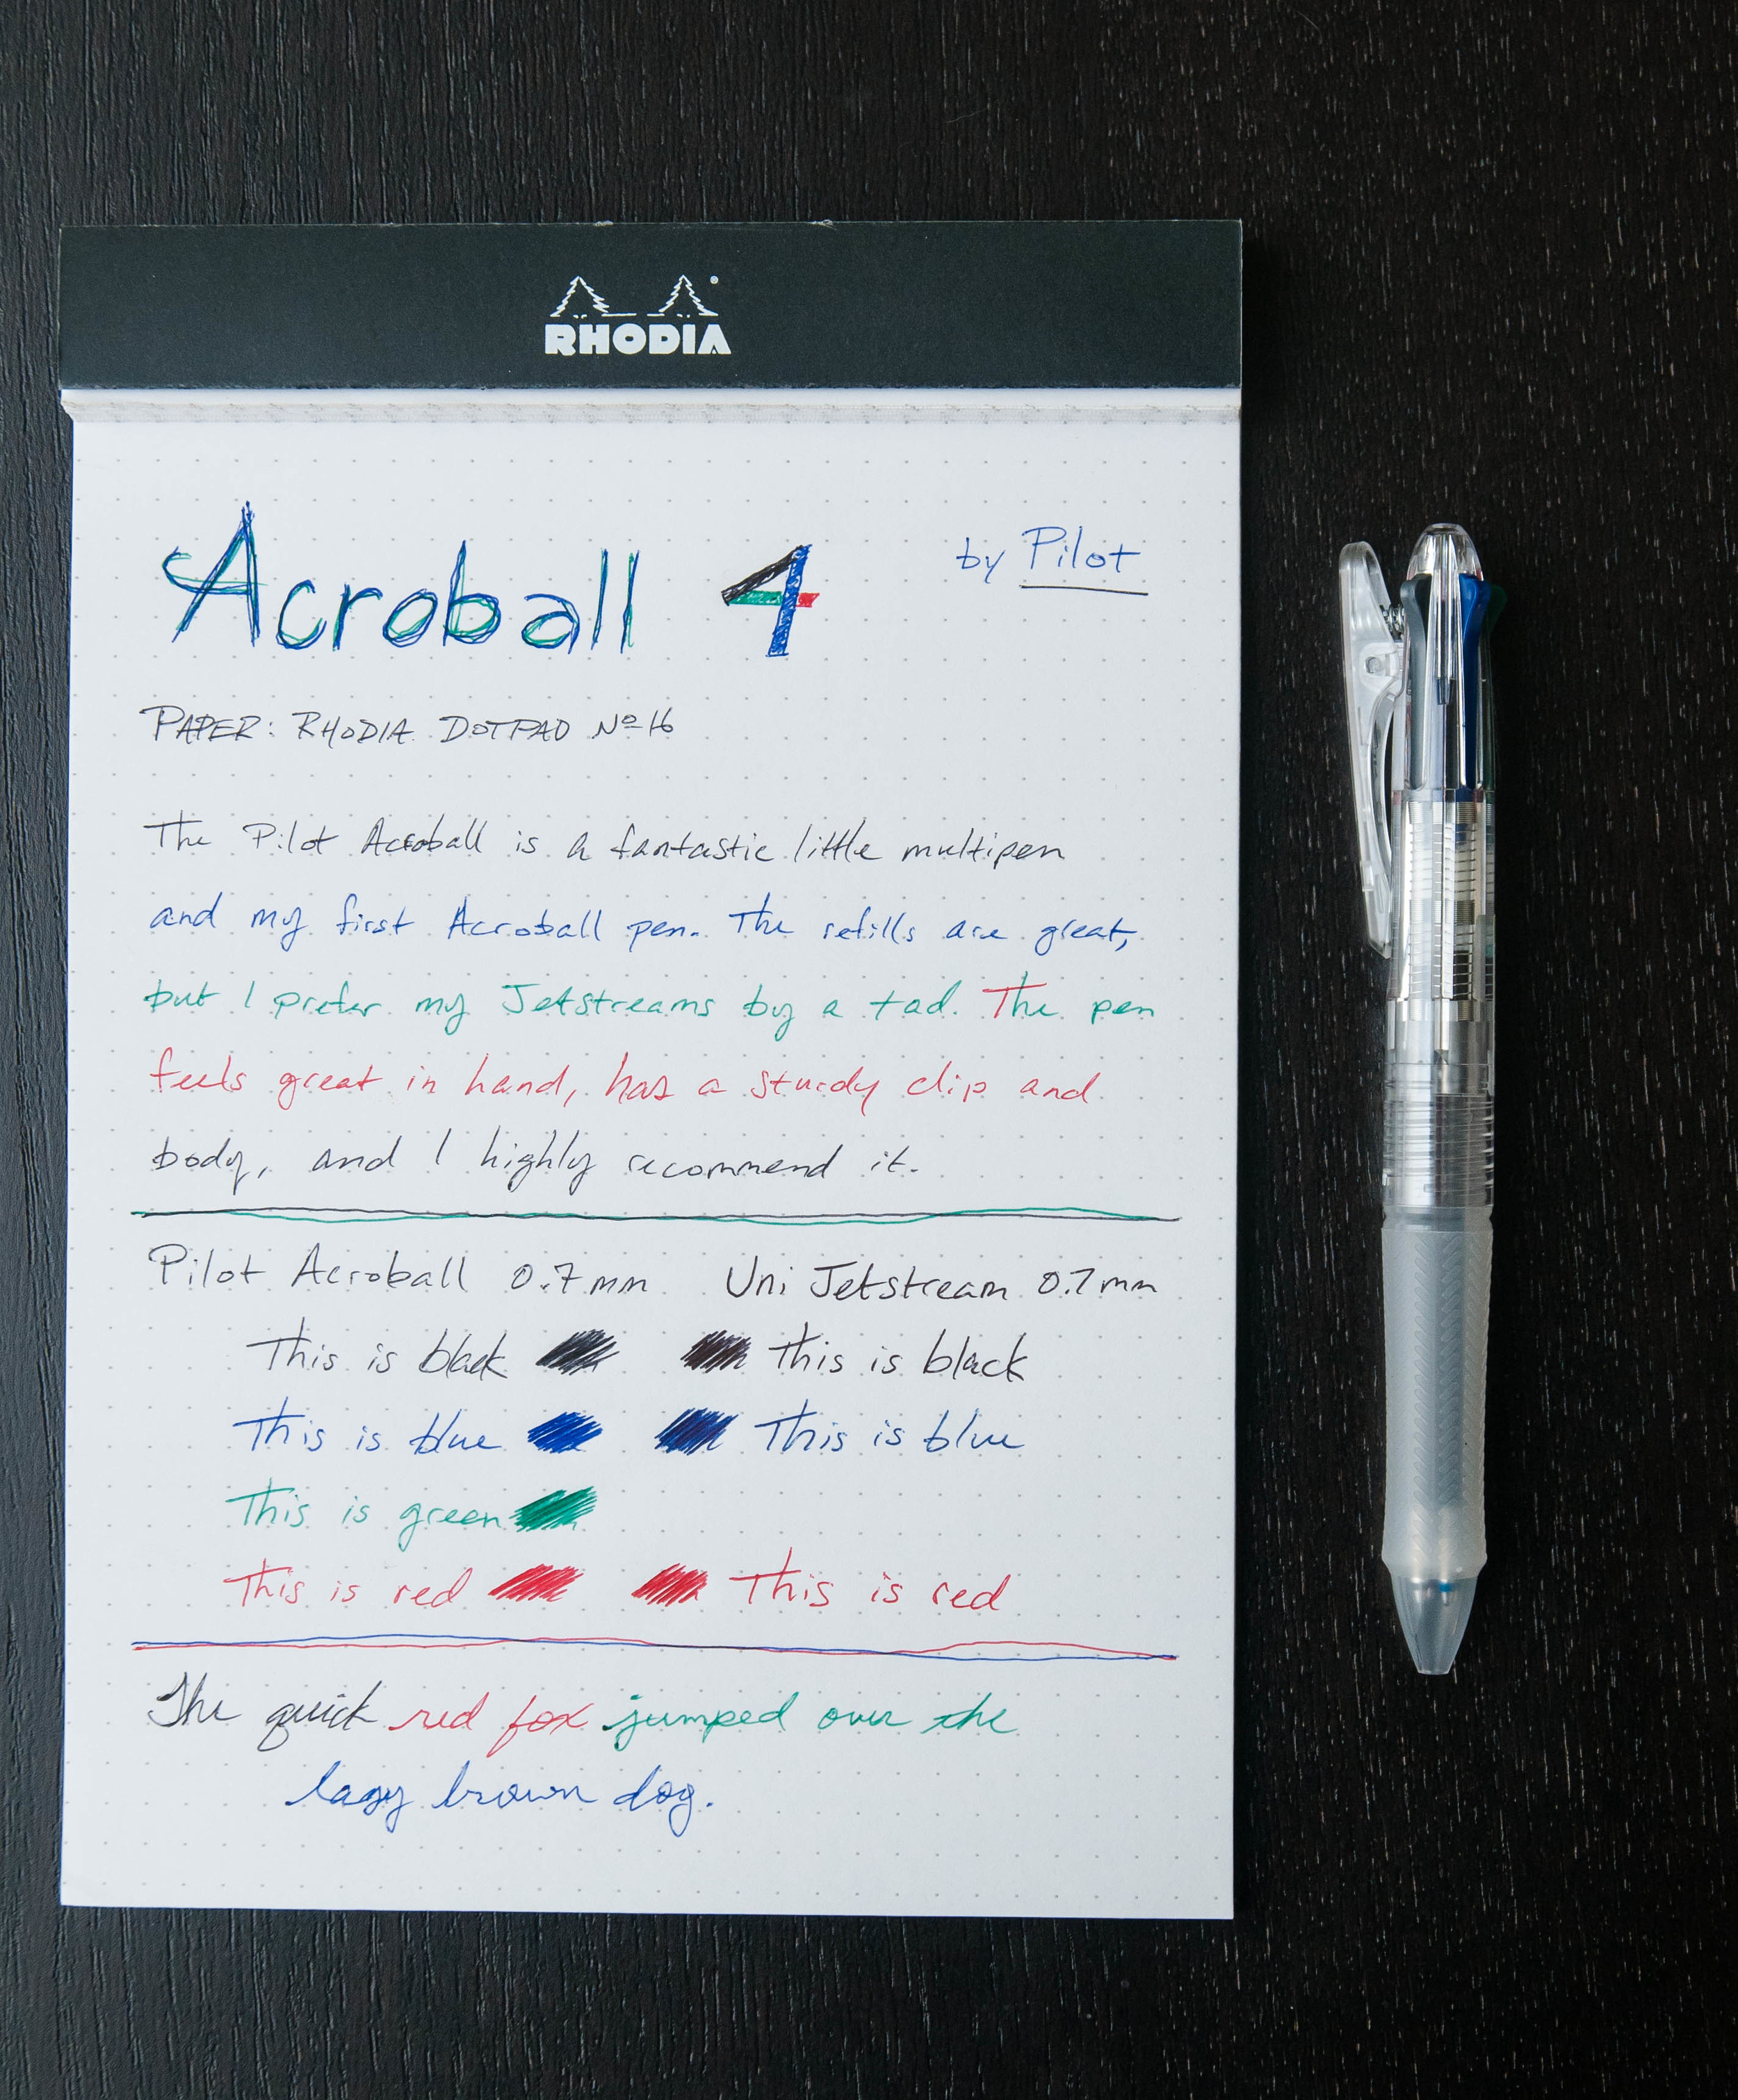 RHODIA
Acroball 4 by Pilot
PAPER: RHODIA DOTPAD Nº 16
The Pilot Acroball is a fantastic little multipen
and my first Acroball pen. The refills are great,
but I prefer my Jetstreams by a tad. The pen
feels great in hand, has a sturdy clip and
body, and I highly recommend it.
Pilot Acroball 0.7mm Uni Jetstream 0.7mm
This is black This is black
This is blue This is blue
This is green
This is red This is red
The quick red fox jumped over the
lazy brown dog.